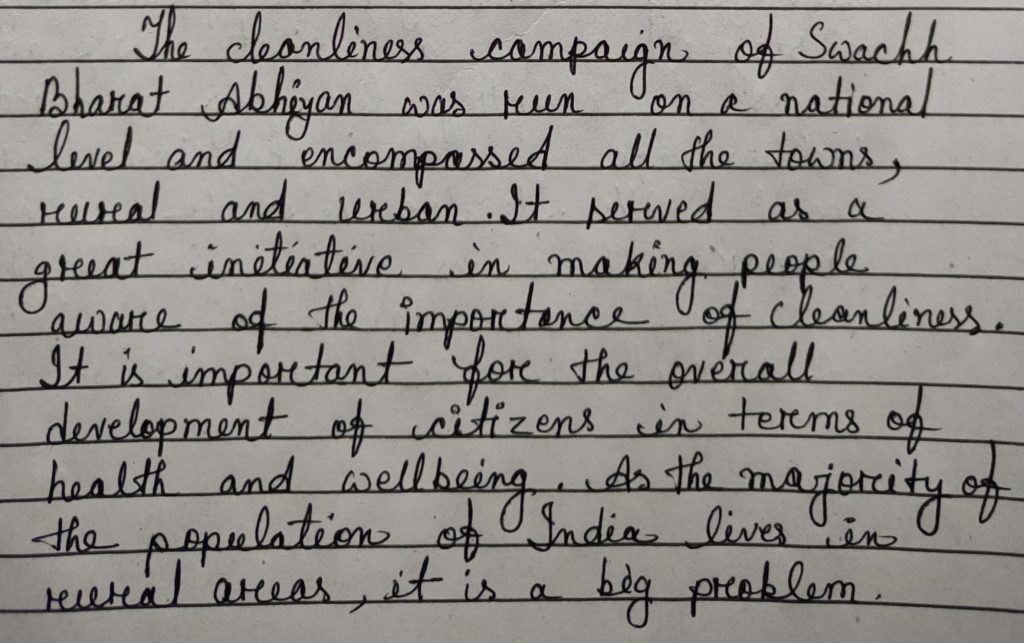 The cleanliness campaign of Swachh
Bharat Abhiyan was run on a national
level and encompassed all the towns,
rural and urban. It served as a
great initiative in making people
aware of the importance of cleanliness.
It is important for the overall
development of citizens in terms of
health and wellbeing. As the majority of
the population of India lives in
rural areas, it is a big problem.